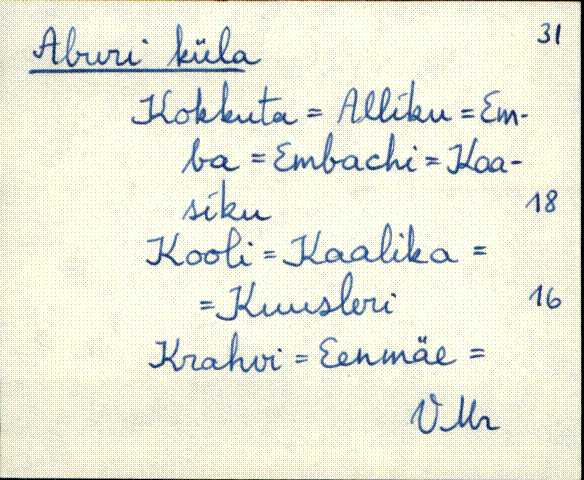 31
Aburi küla
Kokkuta = Alliku = Em-
ba = Embachi = Kaa-
siku 18
Kooli = Kaalika =
= Kuusleri 16
Krahvi = Eenmäe =
VMr